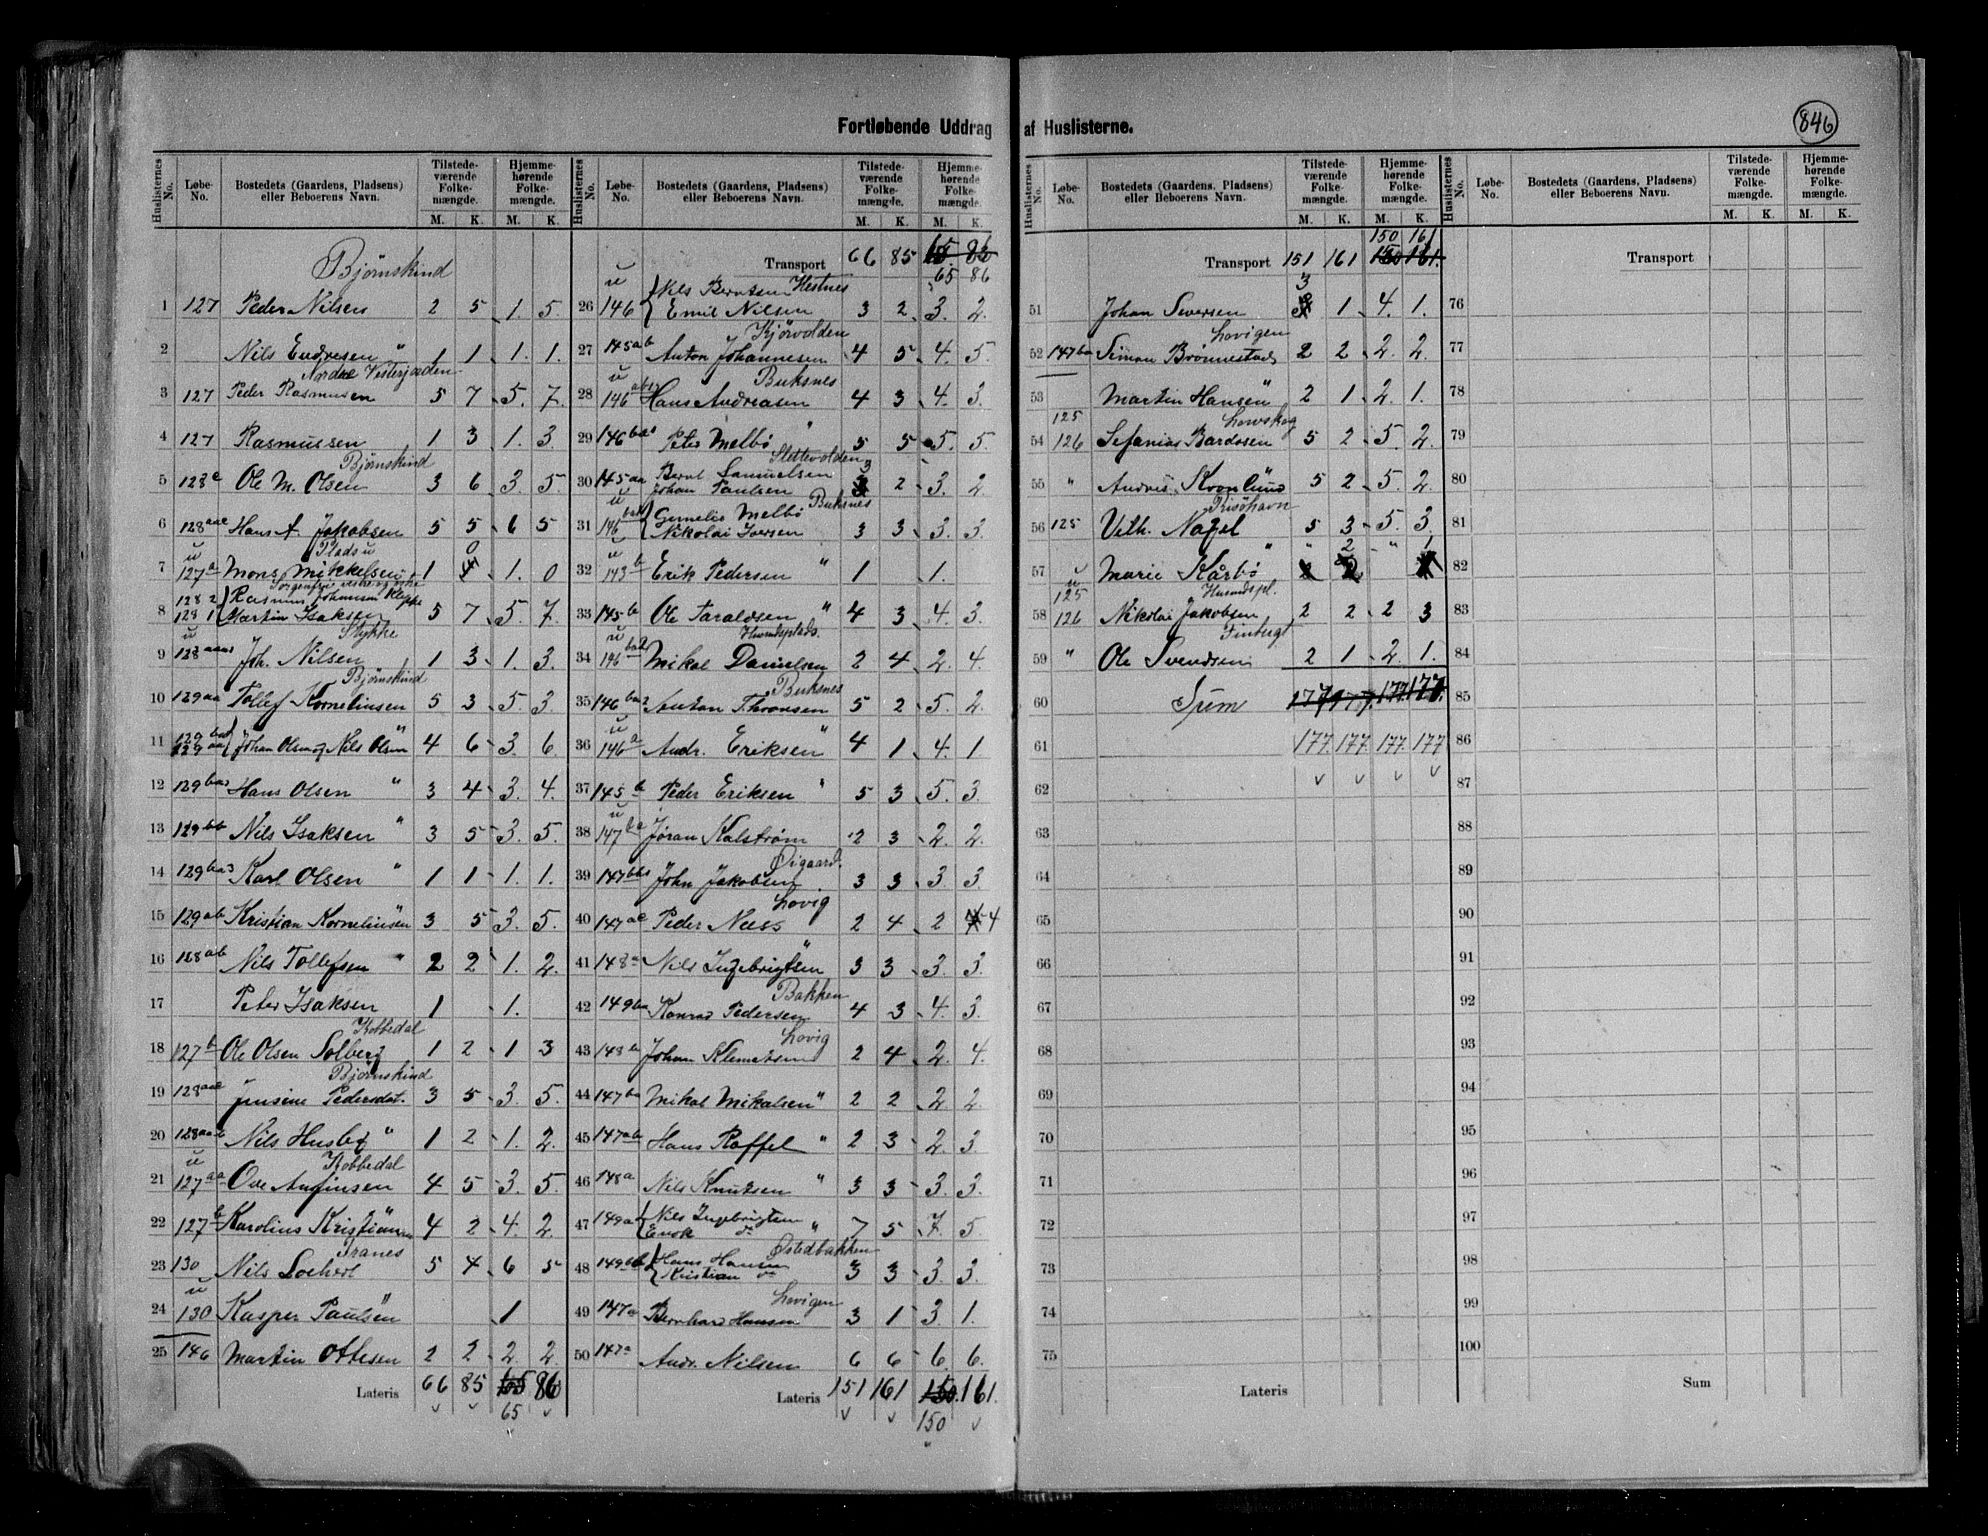 846
Fortløbende Uddrag af Huslisterne.
Huslisternes No. Løbe-No. Bostedets (Gaardens, Pladsens) eller Beboerens Navn. Tilstedeværende Folkemængde. M. K. Hjemmehørende Folkemængde. M. K.
Bjørnskind
1 127 Peder Nilsen 2 5 1. 5.
2 Nils Endresen " 1 1 1. 1.
Nordre Vesterjorden
3 127 Peder Rasmusen 5 7 5. 7.
4 127 Rasmussen 1 3 1. 3.
Bjørnskind
5 128 Ole M. Olsen 3 6 3. 5.
6 128 aae Hans A. Jakobsen 5 5 6 5
Plads u
0
7 127 a Mons Mikkelsen 1 1. 0
8 128 2 Rasmus Johannesen Klippe
128 1 Martin Isaksen 5 7 5. 7.
u Stykke
9 128 Joh. Nilsen 1 3 1. 3.
Bjørnskind
10 129 aa Tollef Kornelinsen 5 3 5. 3.
11 129 Johan Olsen og Nils Olsen " 4 6 3. 6.
12 129 Hans Olsen " 3 4 3. 4.
13 129 bb Nils Isaksen " 3 5 3. 5.
14 129 Karl Olsen " 1 1 1. 1.
15 129 ab Kristian Kornelinsen " 3 5 3. 5.
16 128 ab Nils Tollefsen " 2 2 1. 2.
17 Peter Isaksen 1 1.
Kobbedal
18 127 b Ole Olsen Solberg 1 2 1 3
Bjørnskind
19 128 aae Jensine Pedersdat. 3 5 3. 5.
20 128 Nils Husby " 1 2 1. 2.
u Kobbedal
21 127 aa Ove Anfinsen 4 5 3. 5.
22 127 b Karolins Kristiansen 4 2 4. 2.
Tranes
23 130 Nils Lochert 5 4 6 5
u
24 130 Kasper Paulsen " 1
25 146 Martin Ottesen 2 2 2. 2.
Lateris 66 85 65 86
65
Huslisternes No. Løbe-No. Bostedets (Gaardens, Pladsens) eller Beboerens Navn. Tilstedeværende Folkemængde. M. K. Hjemmehørende Folkemængde. M. K.
Transport 66 85 65 86
65 86
u Nils Berntsen Hestnes
26 146 Emil Nilsen 3 2 3. 2.
Kjörvolden
27 145 ab Anton Johannesen 4 5 4. 5.
u Buksnes
28 146 Hans Andreasen 4 3 4. 3.
29 146 Peter Melbö " 5 5 5. 5.
Slettevolden
Bernt Samuelsen 3
30 145 aa Johan Paulsen 2 3. 2
u Buksnes
Gernelio Melbö
31 146 Nikolai Iversen 3 3 3. 3.
u
32 143 b Erik Pedersen " 1 1.
33 145 b Ole Taraldsen " 4 3 4. 3.
u Husmdsplads.
34 146 Mikal Danielsen 2 4 2. 4.
Buksnes
35 146 Anton Thronsen 5 2 5. 2.
u
36 146 a Andr. Eriksen " 4 1 4. 1
37 145 b Peder Eriksen " 5 3 5. 3.
u
38 147 Jøran Kalstrøm 2 3 2. 2.
Øigaard.
39 147 John Jakobsen 3 3 3 3.
Lovig
40 147 ae Peder Næss 2 4 2 4
41 148 a Nils Ingebrigtsen " 3 3 3. 3.
Bakken
42 149 ba Konrad Pedersen 4 3 4. 3.
Lovig
43 148 b Johan Klemetsen 2 4 2. 4.
44 147 ba Mikal Mikalsen " 2 2 2. 2.
45 147 ab Hans Roffel " 2 3 2. 3.
46 148 a Nils Knutsen " 3 3 3. 3.
47 149 a Nils Ingebrigtsen
Enok do " 7 5 7. 5.
Østedbakken
48 149 bb Hans Hansen
Kristian do 3 3 3. 3.
Lovigen
49 147 a Bernhard Hansen 3 1 3. 1.
50 147 a Andr. Nilsen 6 6 6. 6.
Lateris 151 161 150. 161.
150
Huslisternes No. Løbe-No. Bostedets (Gaardens, Pladsens) eller Beboerens Navn. Tilstedeværende Folkemængde. M. K. Hjemmehørende Folkemængde. M. K.
150 161
Transport 151 161 150 161.
3
51 Johan Siversen 1 4. 1.
Lovigen
52 147 ba Simon Brønnestad 2 2 2. 2.
53 Martin Hansen " 2 1 2. 1.
125 Lovskog
54 126 Sefanias Bardosen 5 2 5. 2.
55 " Andreis Kronlund 5 2 5. 2.
Risöhavn
56 125 Vilh. Nagel 5 3 5. 3.
" 2 " 1
57 Marie Kårbö "
u
125 Husmdspl.
58 126 Nikolai Jakobsen 2 2 2 3
Finbugt
59 " Ole Svendsen 2 1 2. 1.
60 Sum 177 177. 177. 177.
61 177. 177. 177. 177
62
63
64
65
66
67
68
69
70
71
72
73
74
75
Lateris
Huslisternes No. Løbe-No. Bostedets (Gaardens, Pladsens) eller Beboerens Navn. Tilstedeværende Folkemængde. M. K. Hjemmehørende Folkemængde. M. K.
Transport
76
77
78
79
80
81
82
83
84
85
86
87
88
89
90
91
92
93
94
95
96
97
98
99
100
Sum